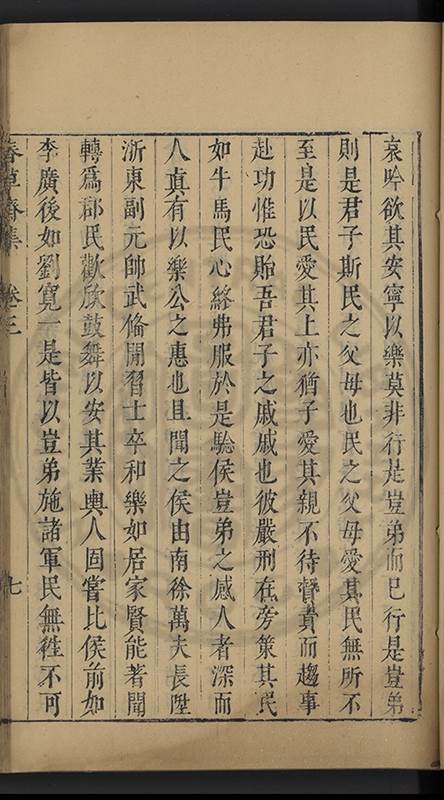 哀吟欲其安寧以樂莫非行是豈弟而已行是豈弟
則是君子斯民之父母也民之父母愛其民無所不
至是以民愛其上亦猶子愛其親不待督責而趨事
赴功惟恐貽吾君子之戚戚也彼嚴刑在旁策其民
如牛馬民心終弗服於是騐侯豈弟之感人者深而
人真有以樂公之惠也且聞之侯由南徐萬夫長陞
浙東副元帥武備閒習士卒和樂如居家賢能著聞
轉爲郡民歡欣鼓舞以安其業輿人固嘗比侯前如
李廣後如劉寬一是皆以豈弟施諸軍民無徃不可
春草齋集 卷三 七